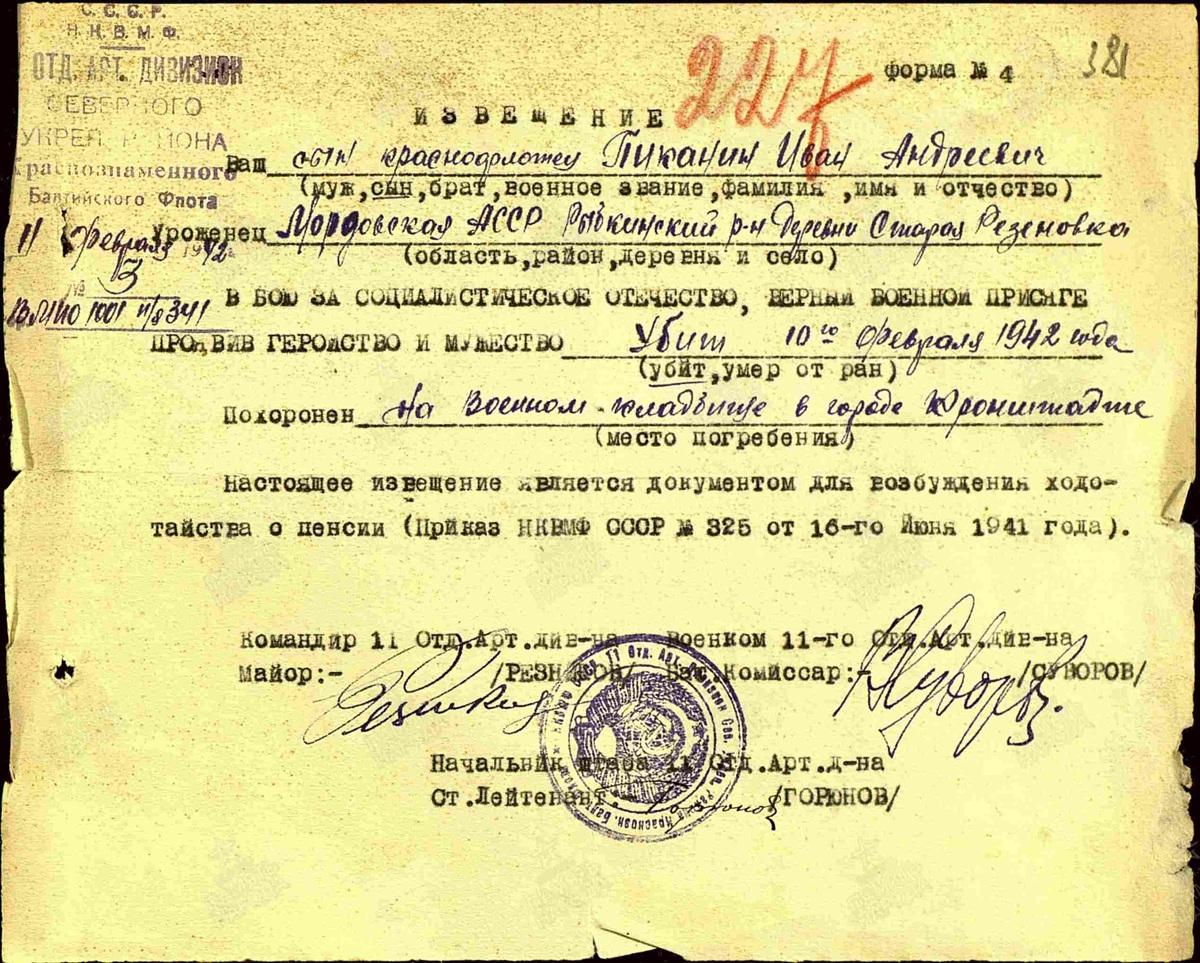 С. С. С. Р.
Н. К. В. М. Ф.
ОТД. АРТ. ДИВИЗИОН
СЕВЕРНОГО
УКРЕП. РАЙОНА
Краснознаменного
Балтийского Флота
11 февраля 1942 г.
№ 3
227
форма № 4
381
ИЗВЕЩЕНИЕ
Ваш сын краснофлотец Пиканин Иван Андреевич
(муж,сын,брат,военное звание,фамилия ,имя и отчество)
Уроженец Мордовская АССР Рыбкинский р-н Деревни Старая Резеповка
(область,район,деревня и село)
В БОЮ ЗА СОЦИАЛИСТИЧЕСКОЕ ОТЕЧЕСТВО, ВЕРНЫЙ ВОЕННОЙ ПРИСЯГЕ
ПРОЯВИВ ГЕРОЙСТВО И МУЖЕСТВО Убит 10го февраля 1942 года
(убит,умер от ран)
Похоронен на Военном кладбище в городе Кронштадте
(место погребения)
Настоящее извещение является документом для возбуждения ходо-
тайства о пенсии (Приказ НКВМФ СССР № 325 от 16-го Июня 1941 года).
Командир 11 Отд.Арт.див-на Военком 11-го Отд.Арт.див-на
Майор:- /РЕЗНИКОВ/ Бат.Комиссар:- /СУВОРОВ/
Начальник штаба 11 Отд.Арт.д-на
Ст.Лейтенант /ГОРЮНОВ/